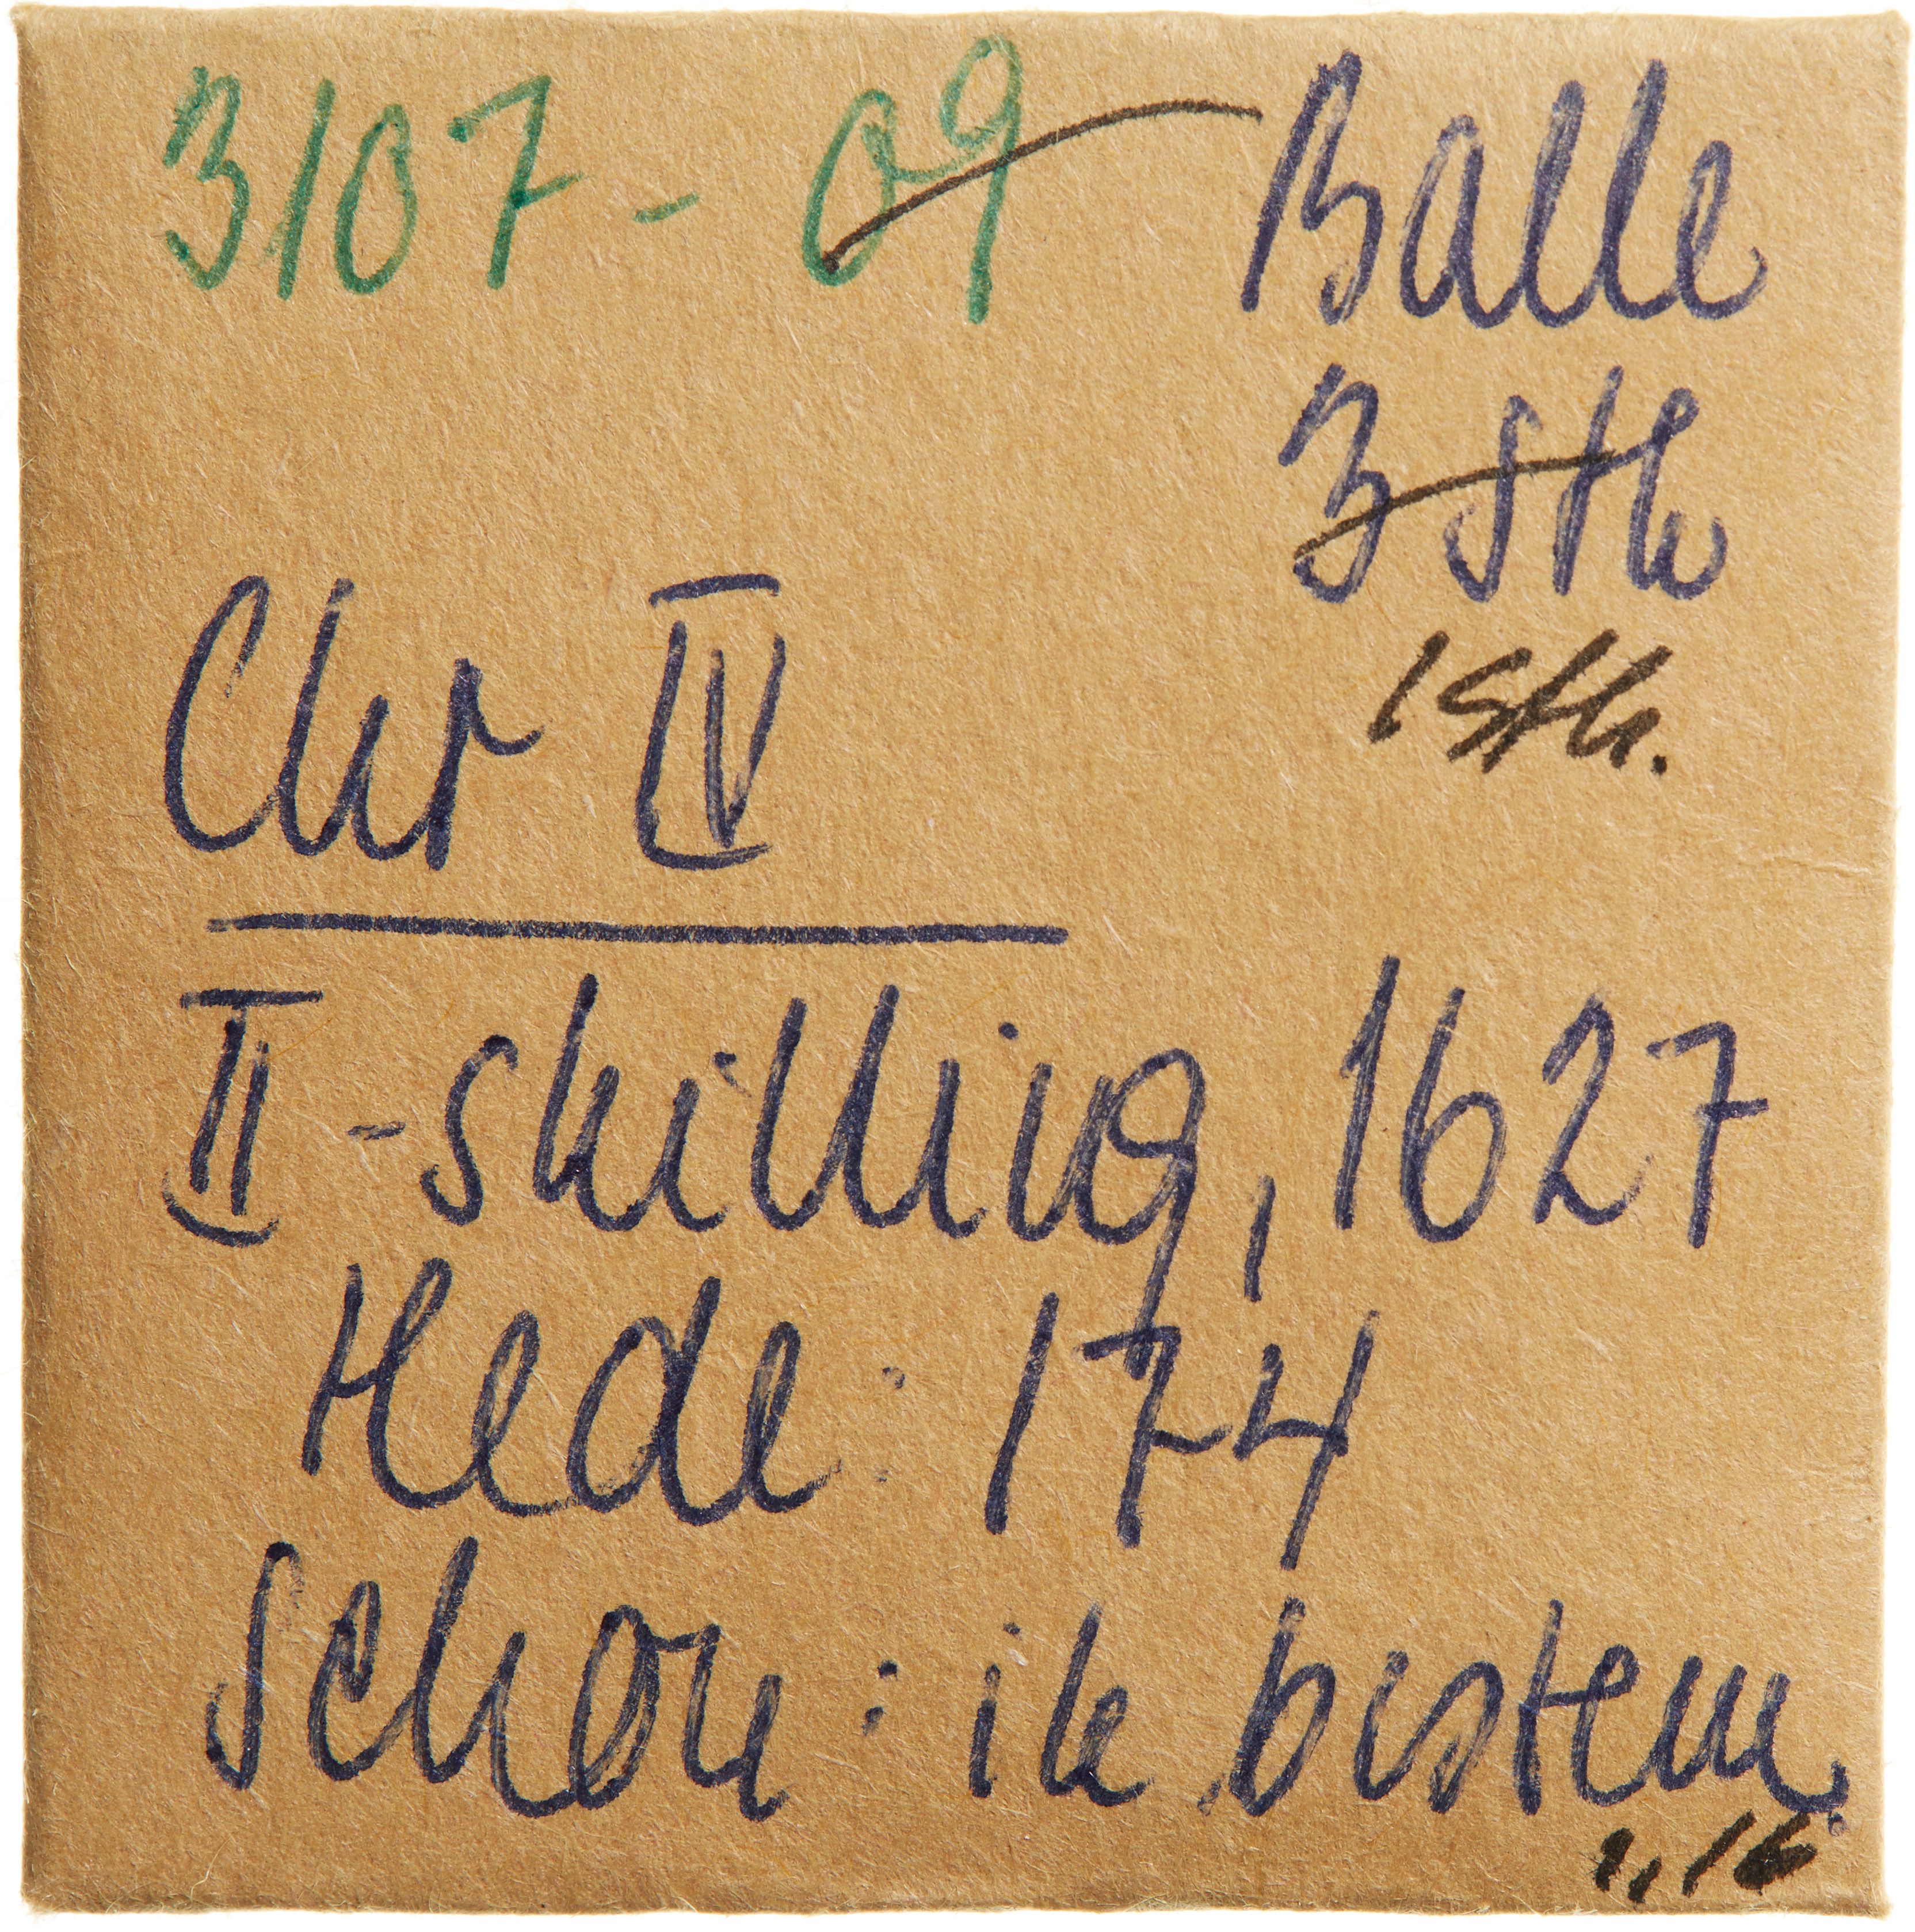 3107 - 09 Balle
3 stk
1 stk.
Chr IV
II - skilling, 1627
Hede: 174
Schou: ik bestem.
1,16